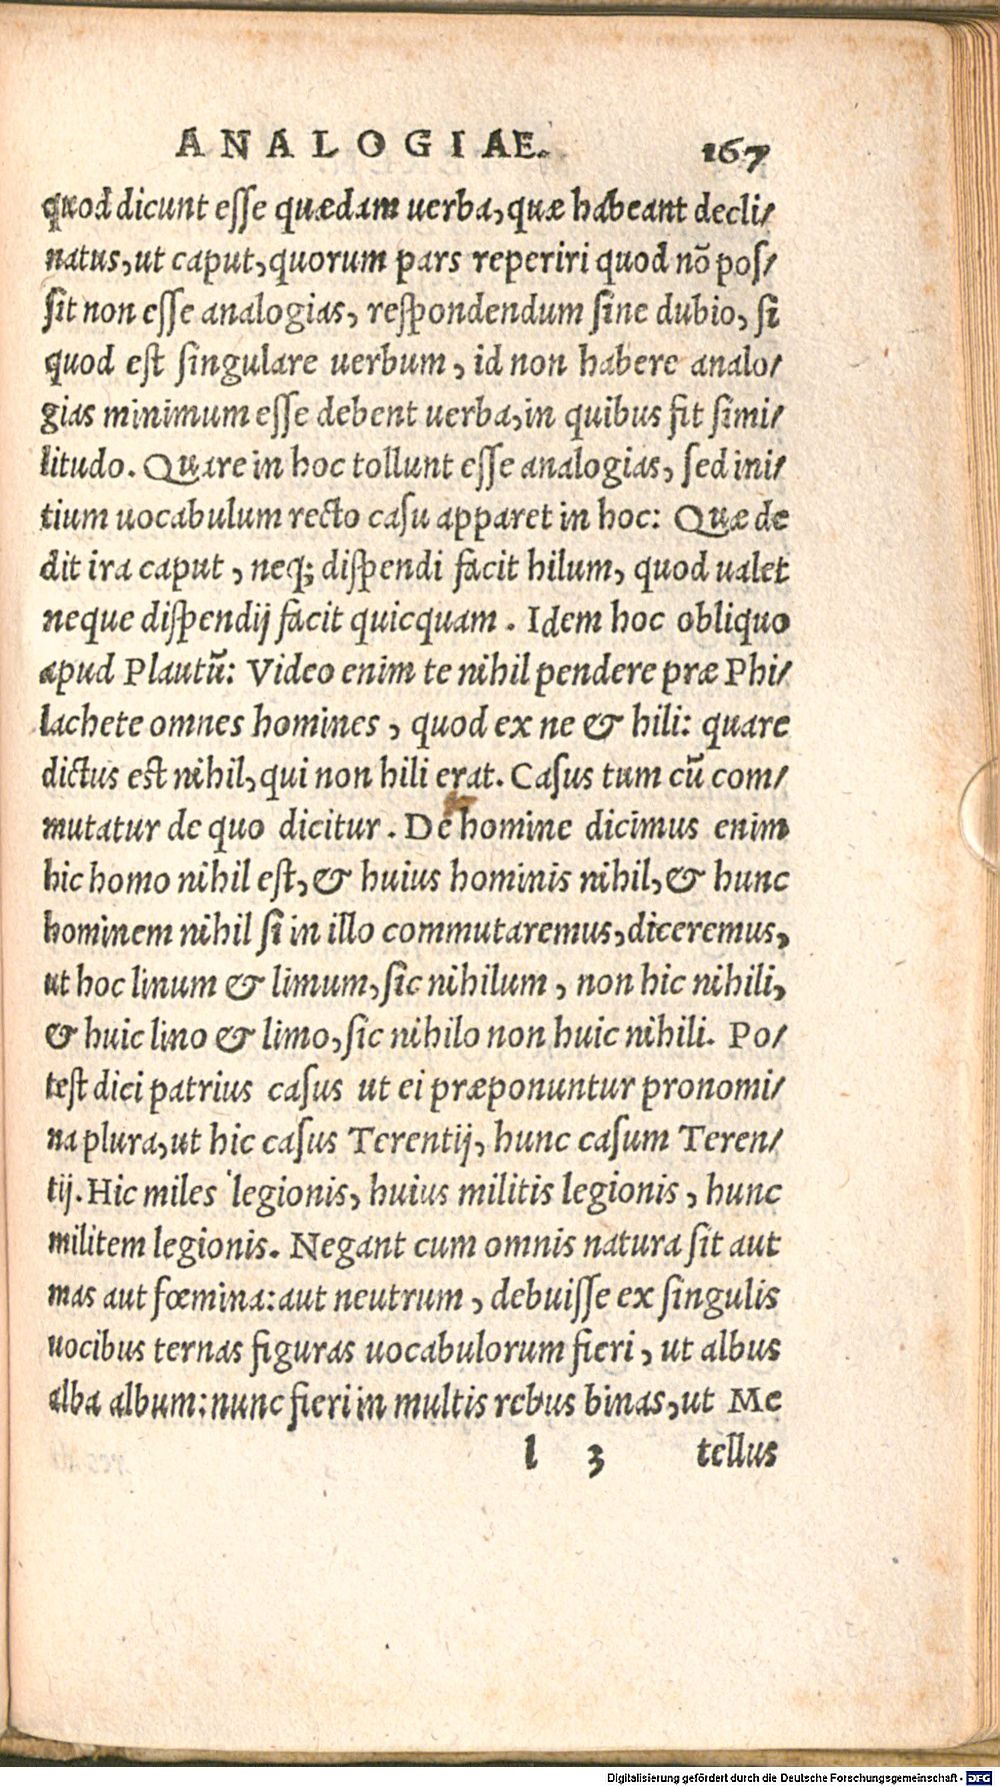 ANALOGIAE. 167
quod dicunt esse quædam uerba, quæ habeant decli/
natus, ut caput, quorum pars reperiri quod nō pos/
sit non esse analogias, respondendum sine dubio, si
quod est singulare uerbum, id non habere analo/
gias minimum esse debent uerba, in quibus fit simi/
litudo. Quare in hoc tollunt esse analogias, sed ini/
tium uocabulum recto casu apparet in hoc: Quæ de
dit ira caput, neq; dispendi facit hilum, quod ualet
neque dispendij facit quicquam. Idem hoc obliquo
apud Plautū: Video enim te nihil pendere præ Phi/
lachete omnes homines, quod ex ne & hili: quare
dictus est nihil, qui non hili erat. Casus tum cū com/
mutatur de quo dicitur. De homine dicimus enim
hic homo nihil est, & huius hominis nihil, & hunc
hominem nihil si in illo commutaremus, diceremus,
ut hoc linum & limum, sic nihilum, non hic nihili,
& huic lino & limo, sic nihilo non huic nihili. Po/
test dici patrius casus ut ei præponuntur pronomi/
na plura, ut hic casus Terentij, hunc casum Teren/
tij. Hic miles legionis, huius militis legionis, hunc
militem legionis. Negant cum omnis natura sit aut
mas aut fœmina: aut neutrum, debuisse ex singulis
uocibus ternas figuras uocabulorum fieri, ut albus
alba album: nunc fieri in multis rebus binas, ut Me
l 3 tellus
Digitalisierung gefördert durch die Deutsche Forschungsgemeinschaft - DFG